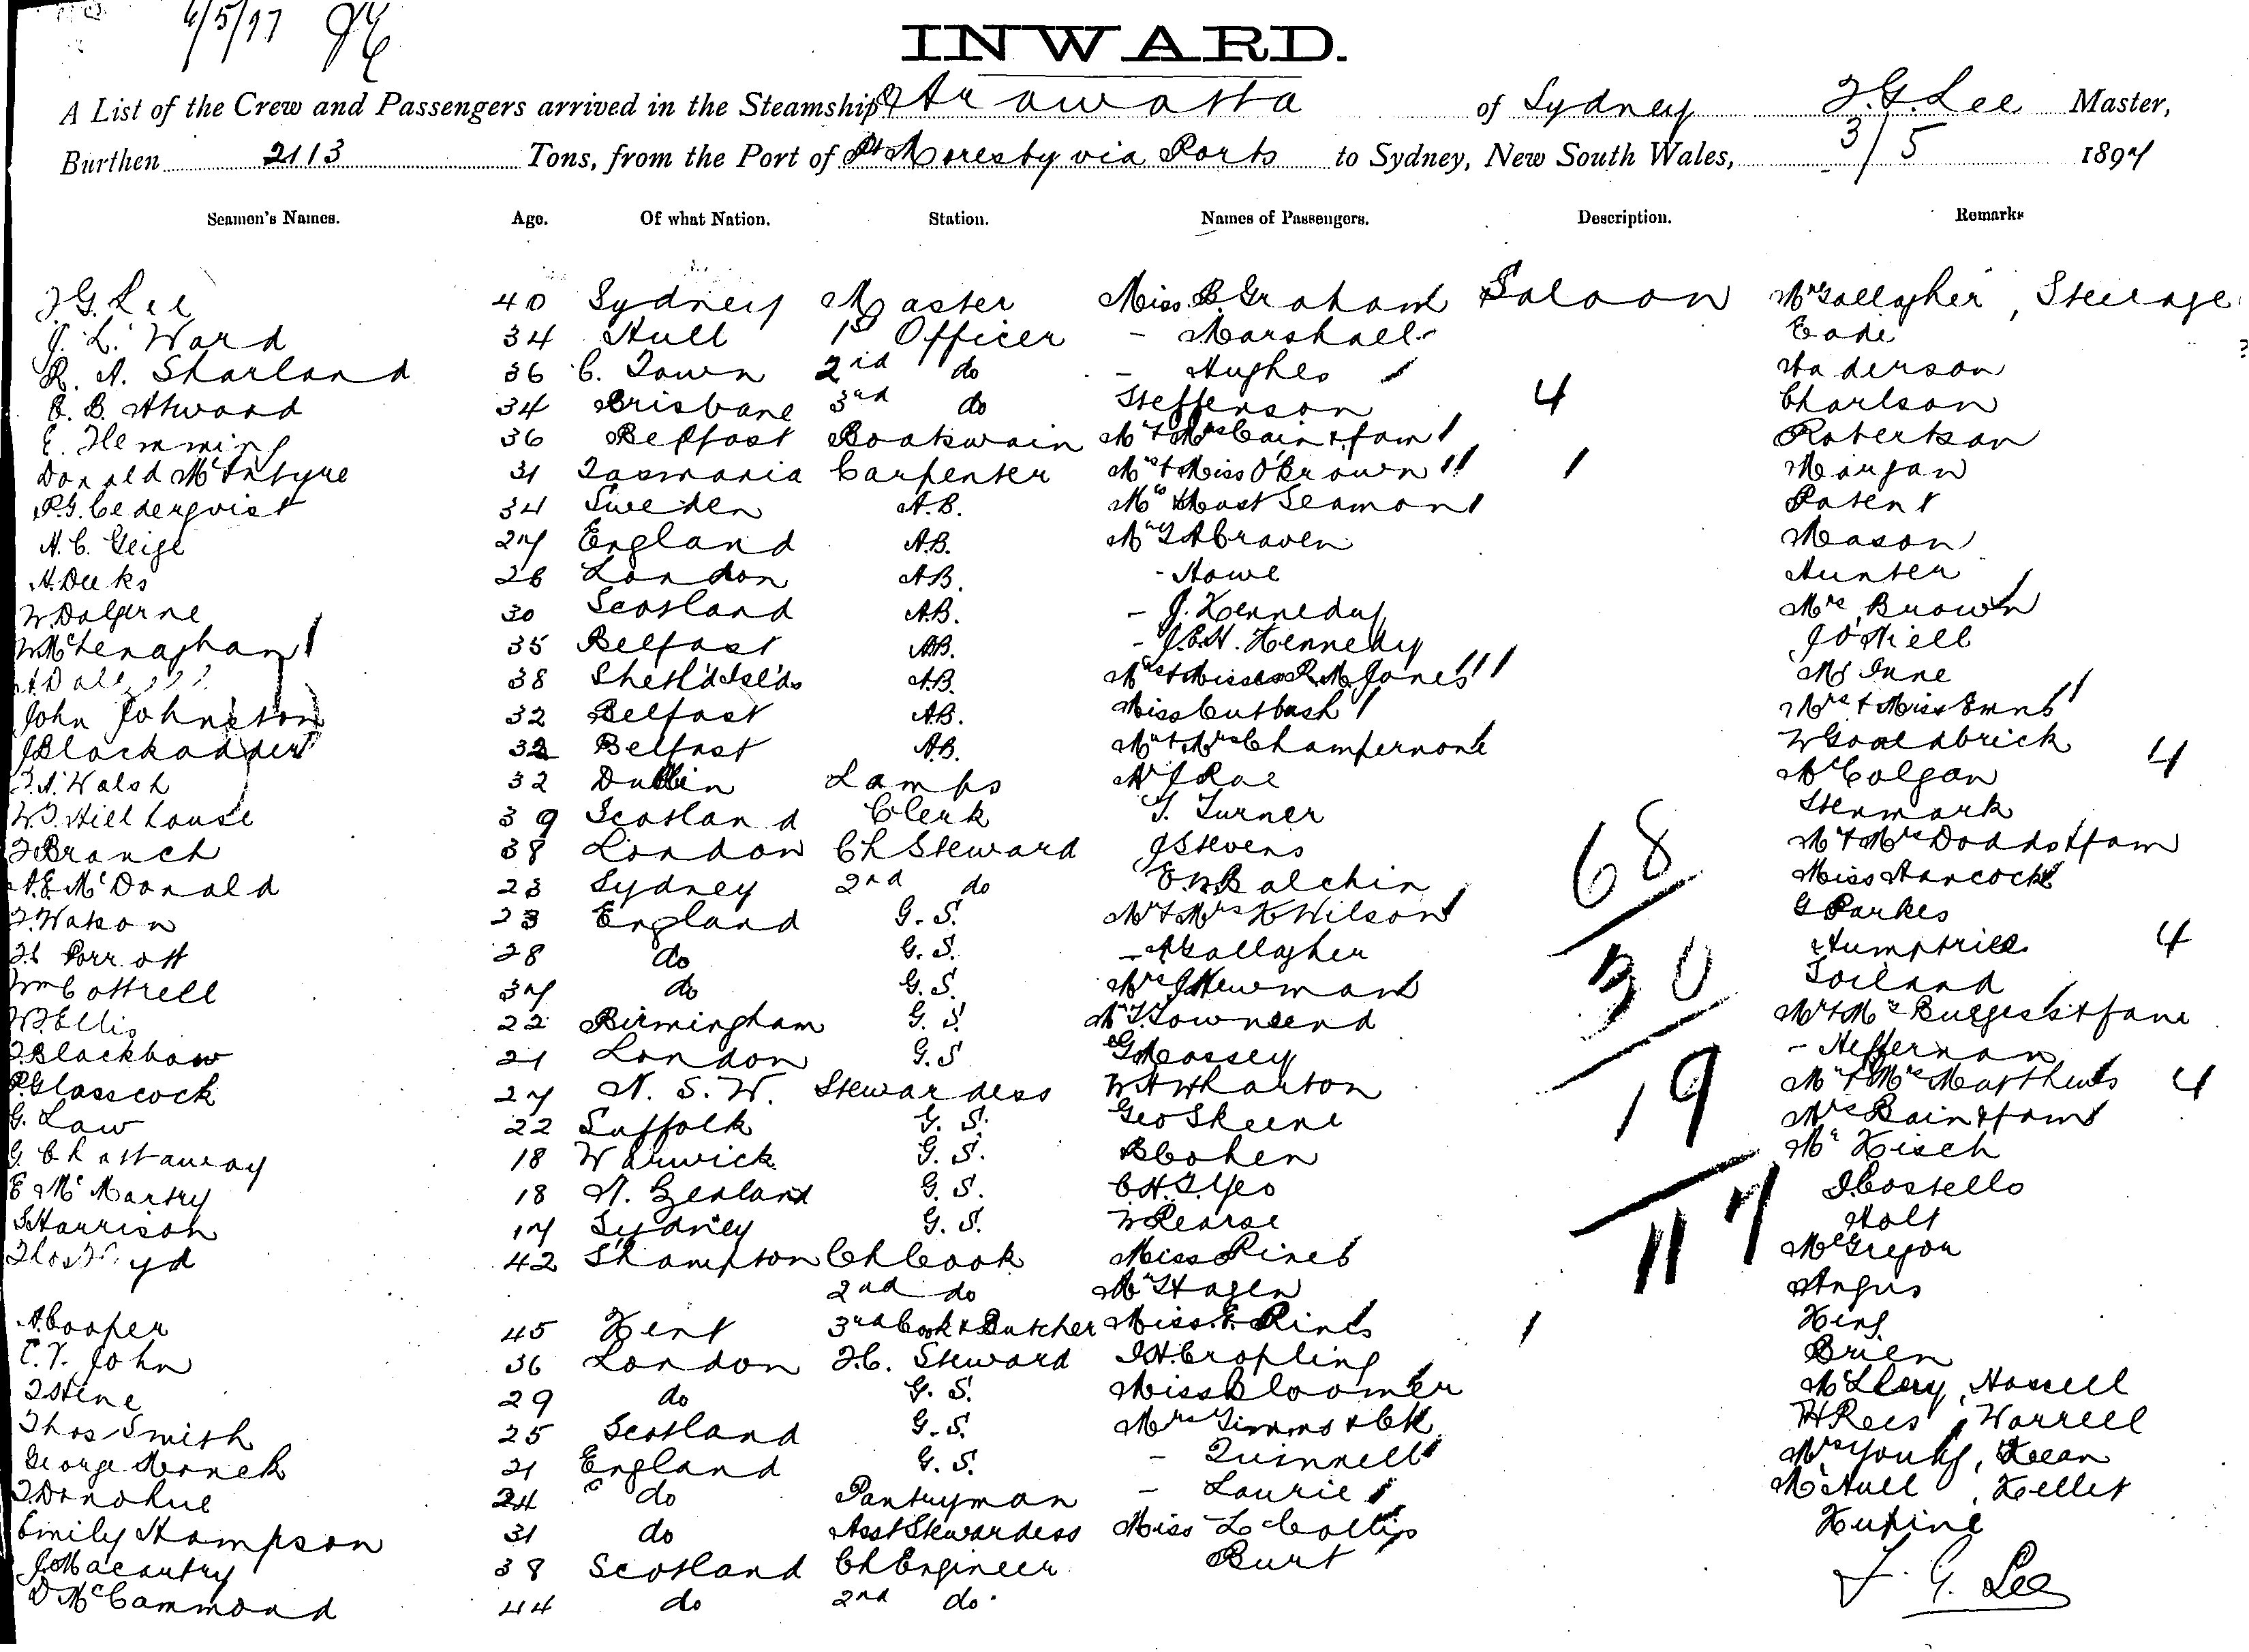 4/5/97
INWARD.
A List of the Crew and Passengers arrived in the Steamship Arawatta of Sydney F.G. Lee Master,
Burthen 2113 Tons, from the Port of Pt Moresby via Ports to Sydney, New South Wales, 3/5 1897
Seamen's Names. Age. Of what Nation. Station. Names of Passengers. Description. Remarks
F.G. Lee 40 Sydney Master Miss B Graham Saloon Mr Gallagher, Steerage
J. L. Ward 34 Hull 1st Officer - Marshall Eadie
R. A. Sharland 36 C. Town 2nd do - Hughes Haderson
E. B. Atwood 34 Brisbane 3rd do Steffenson 4 Charlson
E. Flemming 36 Belfast Boatswain Mr & Mrs Cain & fam Robertson
Donald McIntyre 31 Tasmania Carpenter Mrs & Miss O'Brown 1 Morgan
P.G. Cederqvist 34 Sweden A.B. Mrs & Mast Seamon Patent
H. C. Geige 27 England A.B. Mr Craven Mason
H. Deeks 26 London A.B. - Howe Hunter
W. Dalgerne 30 Scotland A.B. - J. Kennedy Mrs Brown
W McLenaghan 35 Belfast A.B. - J.E.H. Kennedy J O'Niell
38 Shetl'd Isl'ds A.B. Mrs & Misses R.M. Jones Mr June
John Johnston 32 Belfast A.B. Miss Cutbush Mrs & Miss Evans
J Blackadder 32 Belfast A.B. Mr & Mrs Champernone W Gooldbrick 4
T.A. Walsh 32 Dublin Lamps Mr J Rae McColgan
W.T. Hillhouse 39 Scotland Clerk T. Turner Stenmark
F Branch 38 London Ch Steward J Stevens 68 Mr & Mrs Dodds & fam
A.E. McDonald 23 Sydney 2nd do E W Balchin Miss Hancock
F. Watson 23 England G.S. Mr & Mrs K Wilson G Parkes
Parrott 28 do G.S. - A Gallagher 30 Humphries 4
Wm Cottrell 37 do G.S. Mrs J Newman Toiland
W. Ellis 22 Birmingham G.S. Mr T. Townsend Mr & Mrs Burgess & fam
F. Blackbow 21 London G.S. G Massey 19 - Heffernan
P. Glasscock 27 N.S.W. Stewardess W A Wharton Mr & Mrs Matthews 4
G. Law 22 Suffolk G.S. Geo Skeene Mrs Bain & fam
G. Chattaway 18 Warwick G.S. B Cohen Mr Kisch
E McMartry 18 N. Zealand G.S. C.H.T. Yeo 117 J. Costello
S Harrison 17 Sydney G.S. W Pearse Holt
42 S'hampton Ch Cook Miss Pines McGregor
2nd do Mr Hagen Angus
A. Cooper 45 Kent 3rd Cook & Butcher Miss E. Pines 1 King
E.T. John 36 London F.C. Steward J.H. Cropling Brien
F Stene 29 do G.S. Miss Bloomer Hassell
Thos Smith 25 Scotland G.S. Mrs Timms & Ch H Rees, Worrell
George Hornek 21 England G.S. - Quinnell Mrs Young, Kean
J. Donohue 24 do Pantryman - Laurie McHull, Kellet
Emily Hampson 31 do Asst Stewardess Miss L Collip
J. Macartry 38 Scotland Ch Engineer Burt
D McCammond 44 do 2nd do. F. G. Lee